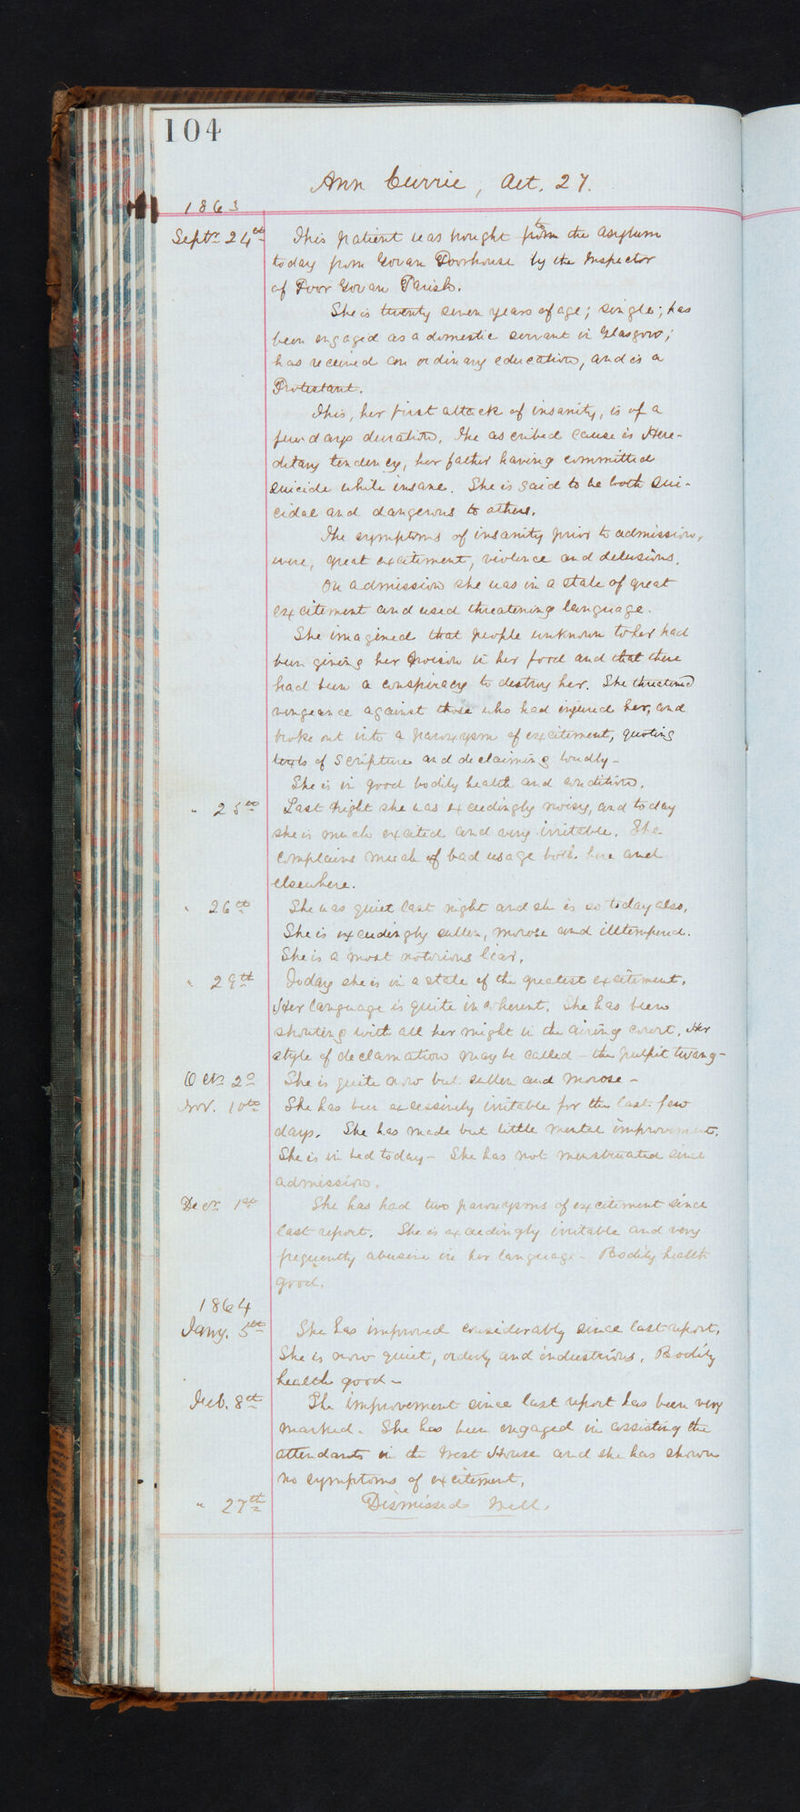 104
Ann Currie, Aet. 27.
1863
Septr. 24th This patient was brought to the Asylum
today from Govan Poorhouse by the Inspector
of Poor Govan Parish.
She is twenty seven years of age; single; has
been engaged as a domestic servant in Glasgow;
has received an ordinary education, and is a
Protestant.
This, her first attack of insanity, is of a
few days duration. The ascribed cause is Here-
ditary tendency, her father having committed
suicide while insane. She is said to be both Sui-
cidal and dangerous to others.
The symptoms of insanity prior to admission,
were, great excitement, violence and delusions.
On admission she was in a state of great
excitement and used threatening language.
She imagined that people unknown to her had
been giving her poison in her food and that there
had been a conspiracy to destroy her. She threatened
vengeance against those who had injured her, and
broke out into a paroxysm of excitement, quoting
texts of Scripture and declaiming loudly-
She is in good bodily health and condition.
" 25th Last night she was exceedingly noisy, and today
she is much excited and very irritable. She
complains much of bad usage both here and
elsewhere.
" 26th She was quiet last night and she is so today also.
She is exceedingly sullen, morose and illtempered.
She is a most notorious liar.
" 29th Today she is in a state of the greatest excitement.
Her language is quite incoherent. She has been
shouting with all her might in the airing court. Her
style of declamation may be called - the pulpit twang-
Octr. 2d She is quite now but sullen and morose -
Nov. 10th She has been excessively irritable for the last few
days. She has made but little mental improvement.
She is in bed today - She has not menstruated since
admission.
Decr. 1st She has had two paroxysms of excitement since
last report. She is exceedingly irritable and very
frequently abusive in her language - Bodily health
good.
1864
Jany. 5th She has improved considerably since last report.
She is now quiet, orderly and industrious. Bodily
health good -
Feb. 8th The improvement since last report has been very
marked. She has been engaged in assisting the
attendants in the West House and she has shown
no symptoms of excitement.
" 27th Dismissed Well.